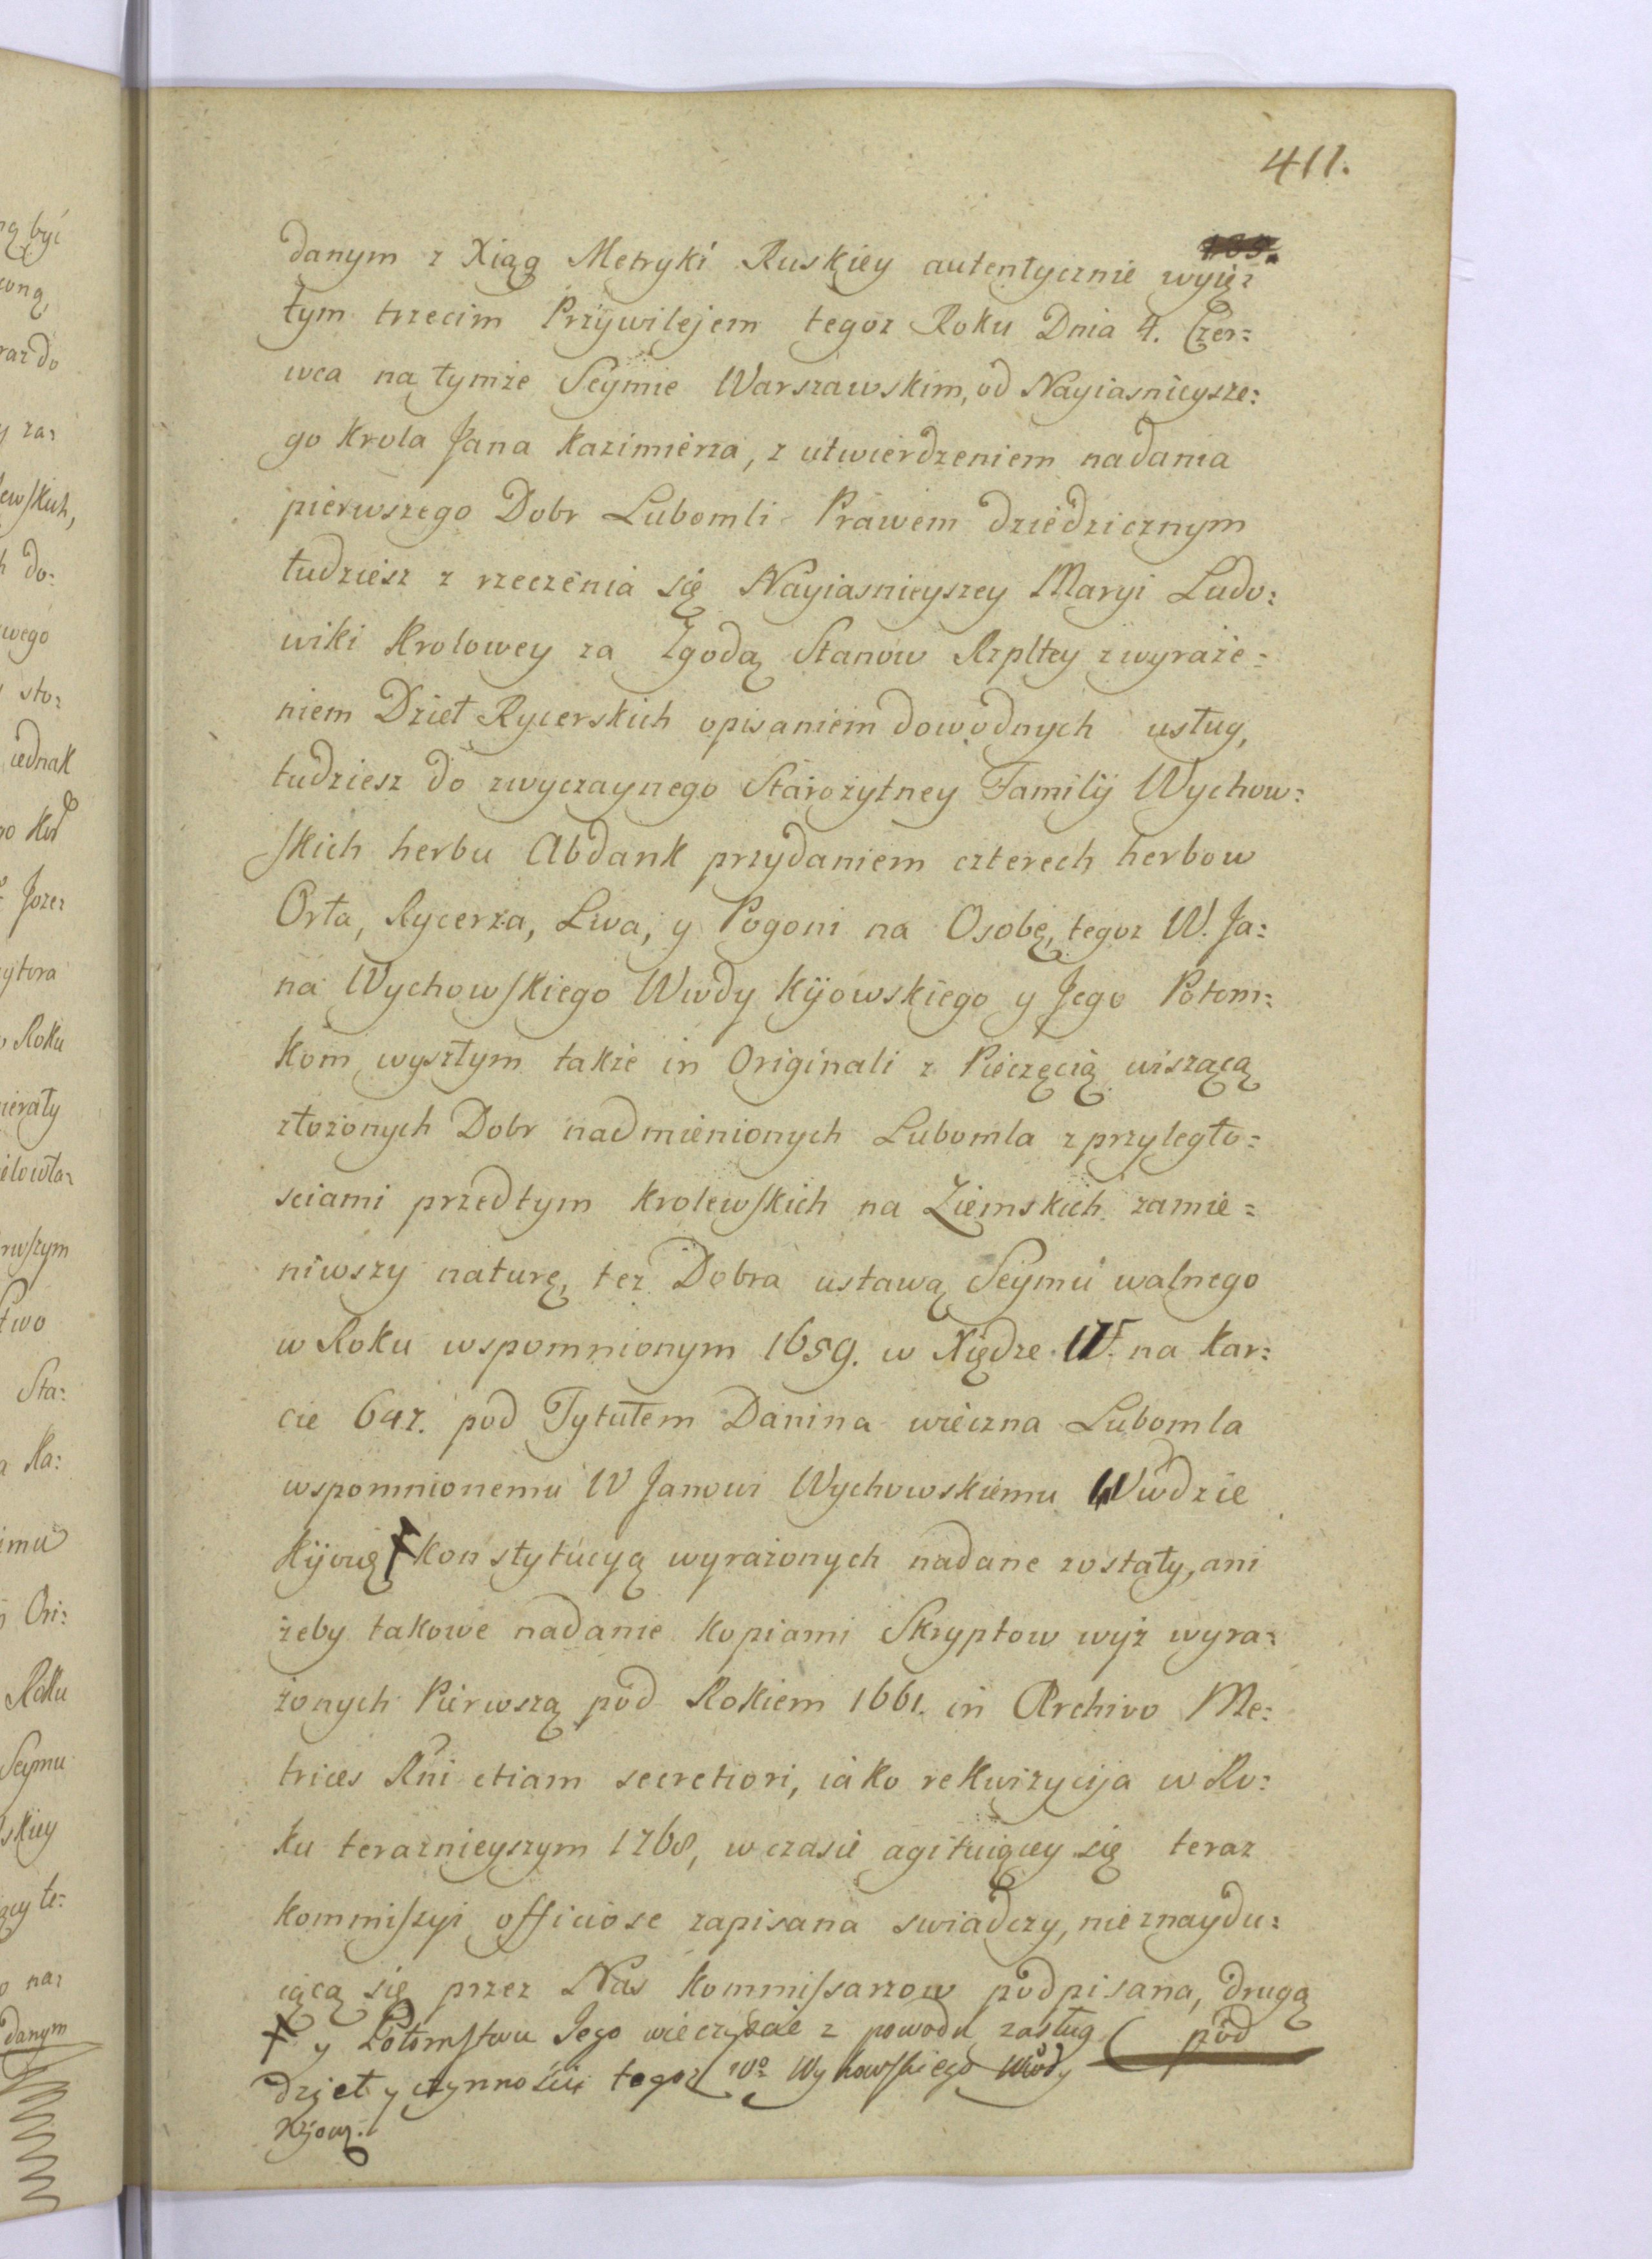 411.
danym z Xiąg Metryki Ruskiey autentycznie wyięz
tym trzecim Przywilejem tegoz Roku Dnia 4. Czer:
wca na tymże Seymie Warszawskim, od Nayiasnieysze:
go Krola Jana Kazimierza, z utwierdzeniem nadania
pierwszego Dobr Lubomli Prawem dziedzicznym
tudziesz z rzeczenia się Nayiasnieyszey Maryi Ludo:
wiki Krolowey za Zgodą Stanow Rzpltey z wyraże:
niem Dzieł Rycerskich opisaniem dowodnych usług,
tudziesz do zwyczaynego Starożytney Familij Wychow:
skich herbu Abdank przydaniem czterech herbow
Orła, Rycerza, Lwa, y Pogoni na Osobę, tegoz W. Ja:
na Wychowskiego Wwdy Kijowskiego y Jego Potom:
kom wyszłym także in Originali z Pieczęcią wiszącą
złożonych Dobr nadmienionych Lubomla z przyległo:
sciami przedtym Krolewskich na Ziemskich zamie:
niwszy naturę, tez Dobra ustawą Seymu walnego
w Roku wspomnionym 1659. w Xiędze IV. na kar:
cie 642. pod Tytułem Danina wieczna Lubomla
wspomnionemu W Janowi Wychowskiemu Wwdzie
Kijowę + konstytucyą wyrażonych nadane zostały, ani
żeby takowe nadanie kopiami Skryptow wyż wyra:
żonych Pierwszą pod Rokiem 1661. in Archivo Me:
trices Rni etiam secretiori, iako rekwizycija w Ro:
ku teraznieyszym 1768, w czasie agituiącey się teraz
kommiszyi officiose zapisana swiadczy, nieznaydu:
iącą się przez Nas kommissarzow podpisana, drugą
pod
+ y Potomstwu Jego wieczyscie z powodu zasług
dzieł y czynności tegoz Wo Wyhowskiego Wwdy
Kijow.
ną być
raz do
y za:
ewskich,
do:
wego
sto:
iednak
ytora
Roku
ierały
rwszym
two
Sta:
a Ra:
imu
Ori:
Roku
Seymu
skiey
ący te:
o na:
danym